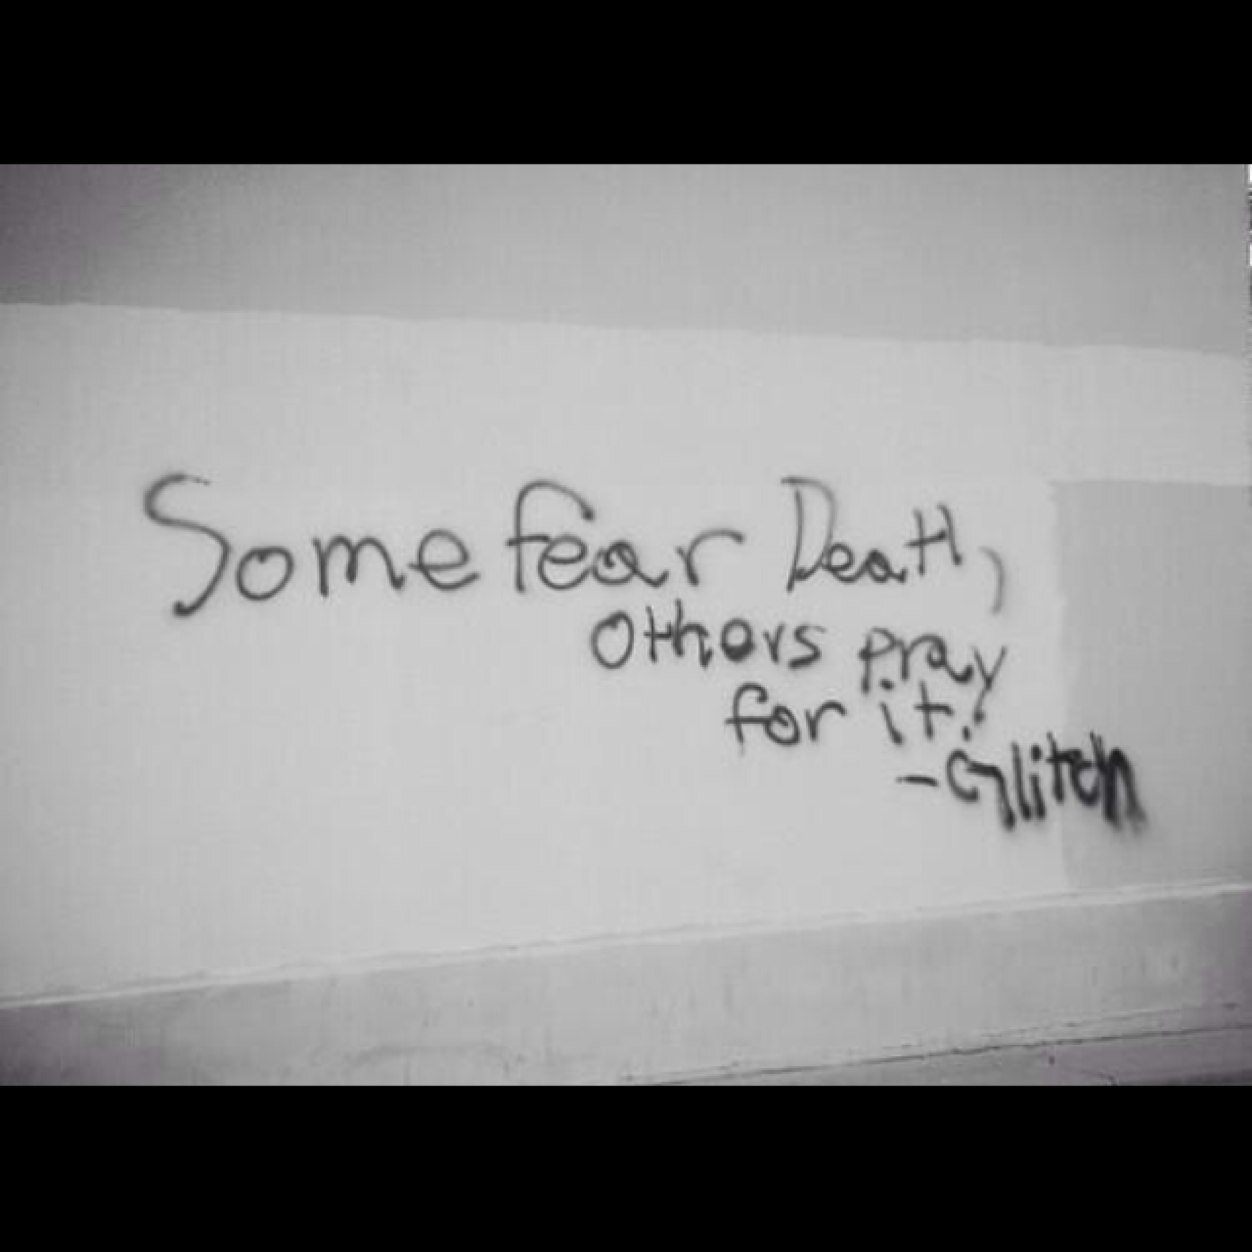 Some fear Death,
others pray
for it.
-Glitch